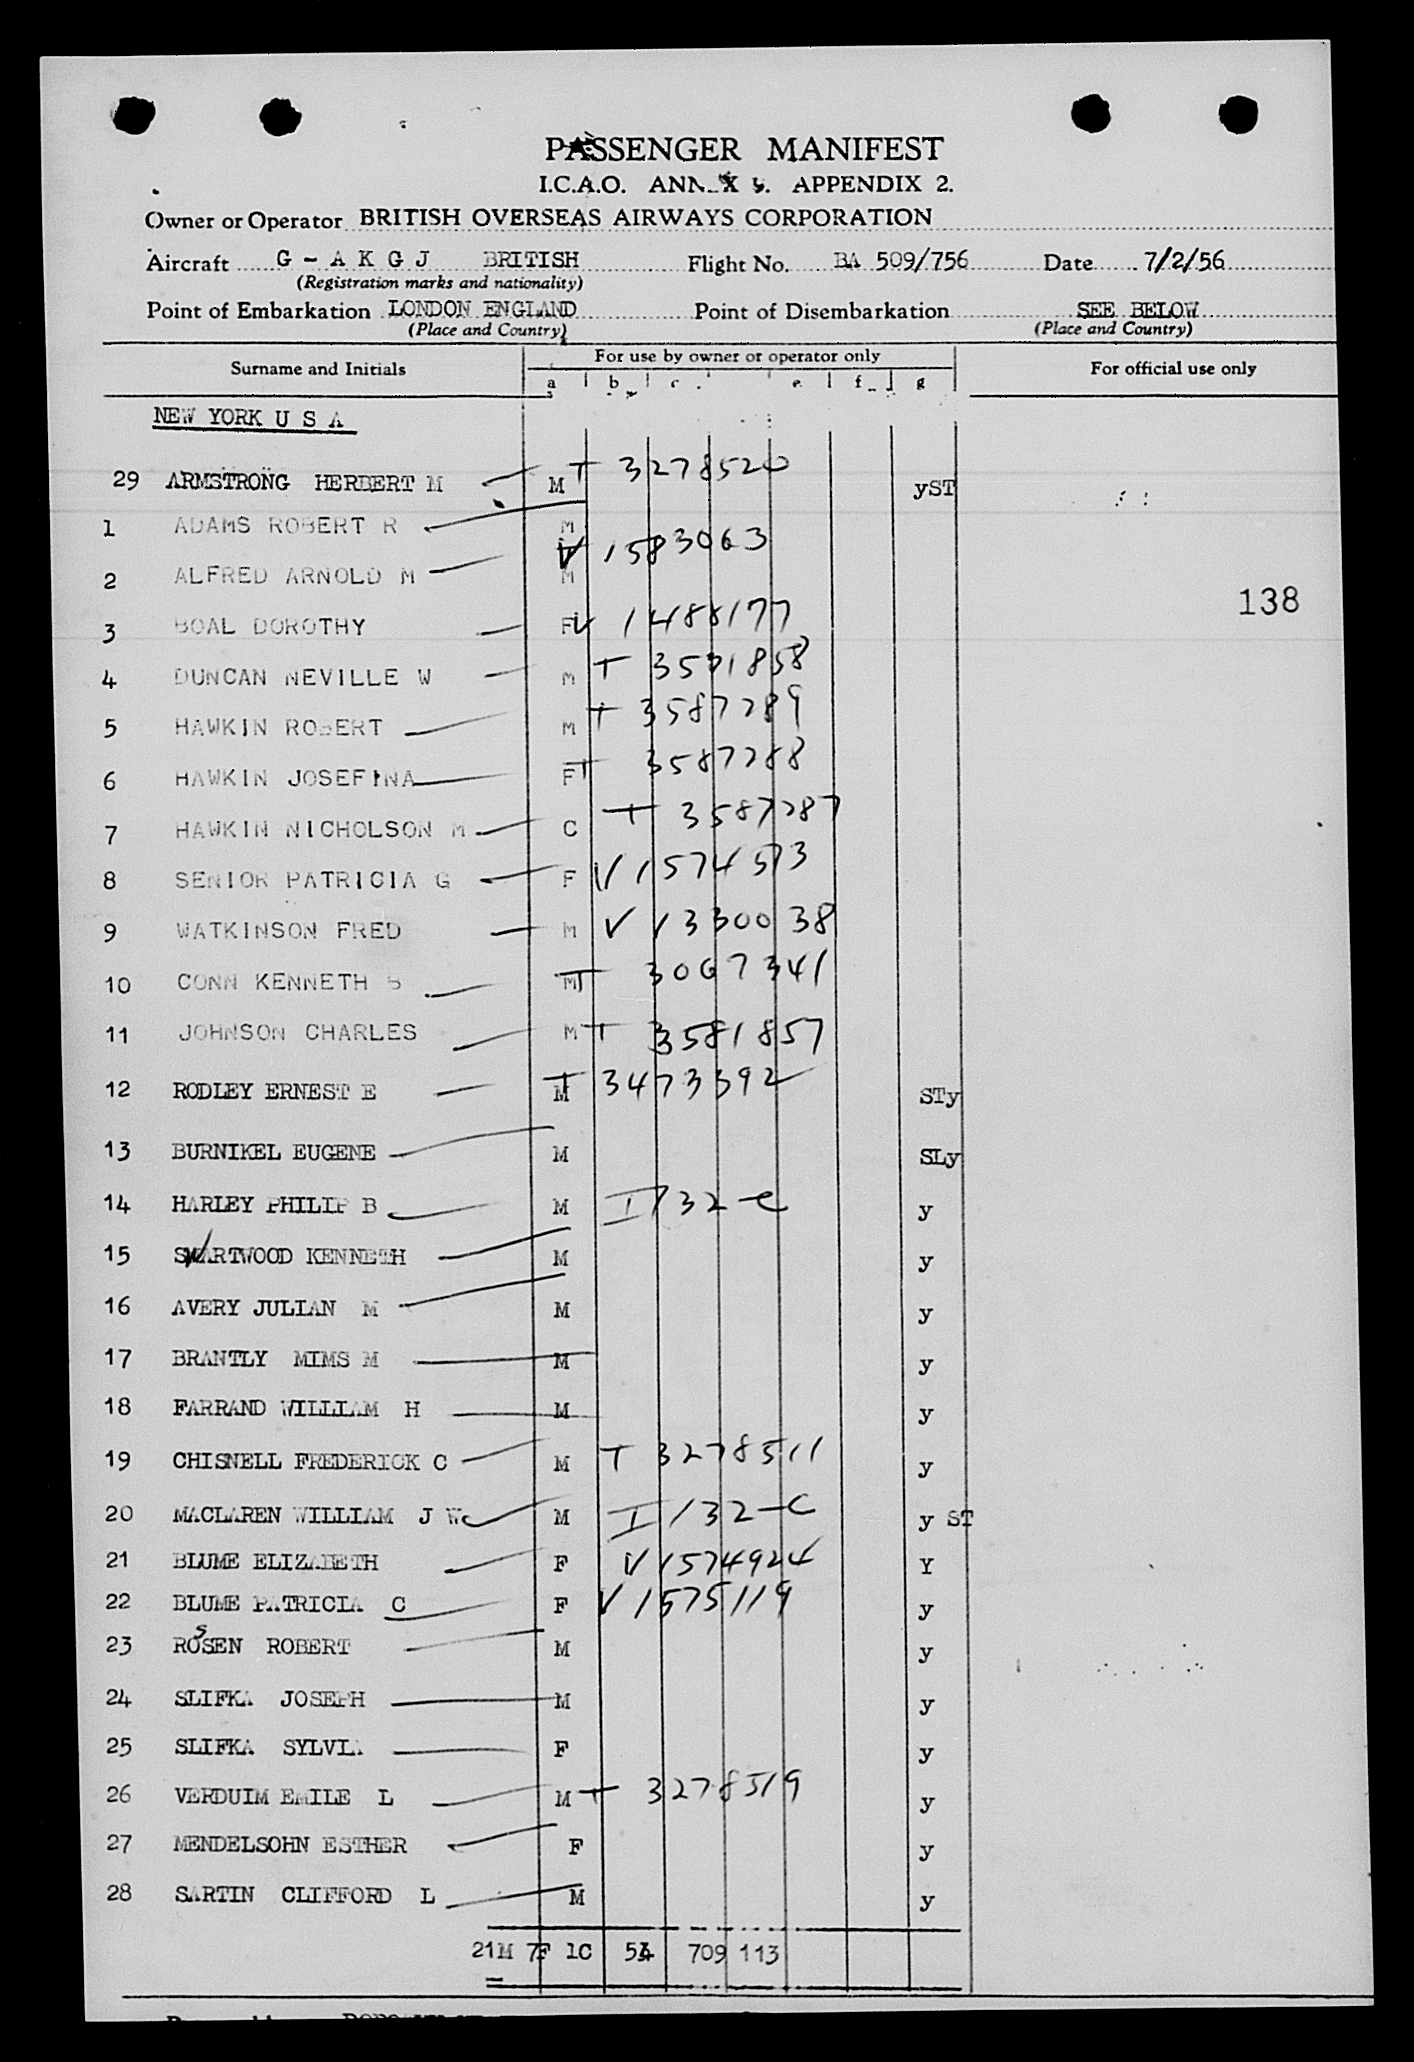 PASSENGER MANIFEST
I.C.A.O. ANNEX 9. APPENDIX 2.
Owner or Operator BRITISH OVERSEAS AIRWAYS CORPORATION
Aircraft G - A K G J BRITISH Flight No. BA 509/756 Date 7/2/56
(Registration marks and nationality)
Point of Embarkation LONDON ENGLAND Point of Disembarkation SEE BELOW
(Place and Country) (Place and Country)
Surname and Initials For use by owner or operator only For official use only
a b c e f g
NEW YORK U S A
29 ARMSTRONG HERBERT M M T 3278520 yST
1 ADAMS ROBERT R M
2 ALFRED ARNOLD M M V 1583063
138
3 BOAL DOROTHY F V 1488177
4 DUNCAN NEVILLE W M T 3581858
5 HAWKIN ROBERT M T 3587289
6 HAWKIN JOSEFINA F T 3587288
7 HAWKIN NICHOLSON M C T 3587287
8 SENIOR PATRICIA G F V 1574573
9 WATKINSON FRED M V 1330038
10 CONN KENNETH S M T 3067341
11 JOHNSON CHARLES M T 3581857
12 RODLEY ERNEST E M T 3473392 STy
13 BURNIKEL EUGENE M SLy
14 HARLEY PHILIP B M I 132-C y
15 SWARTWOOD KENNETH M y
16 AVERY JULIAN M M y
17 BRANTLY MIMS M M y
18 FARRAND WILLIAM H M y
19 CHISNELL FREDERICK C M T 3278511 y
20 MACLAREN WILLIAM J W M I 132-C y ST
21 BLUME ELIZABETH F V 1574924 Y
22 BLUME PATRICIA C F V 1575119 y
23 ROSSEN ROBERT M y
24 SLIFKA JOSEPH M y
25 SLIFKA SYLVIA F y
26 VERDUIM EMILE L M T 3278519 y
27 MENDELSOHN ESTHER F y
28 SARTIN CLIFFORD L M y
21M 7F 1C 54 709 113